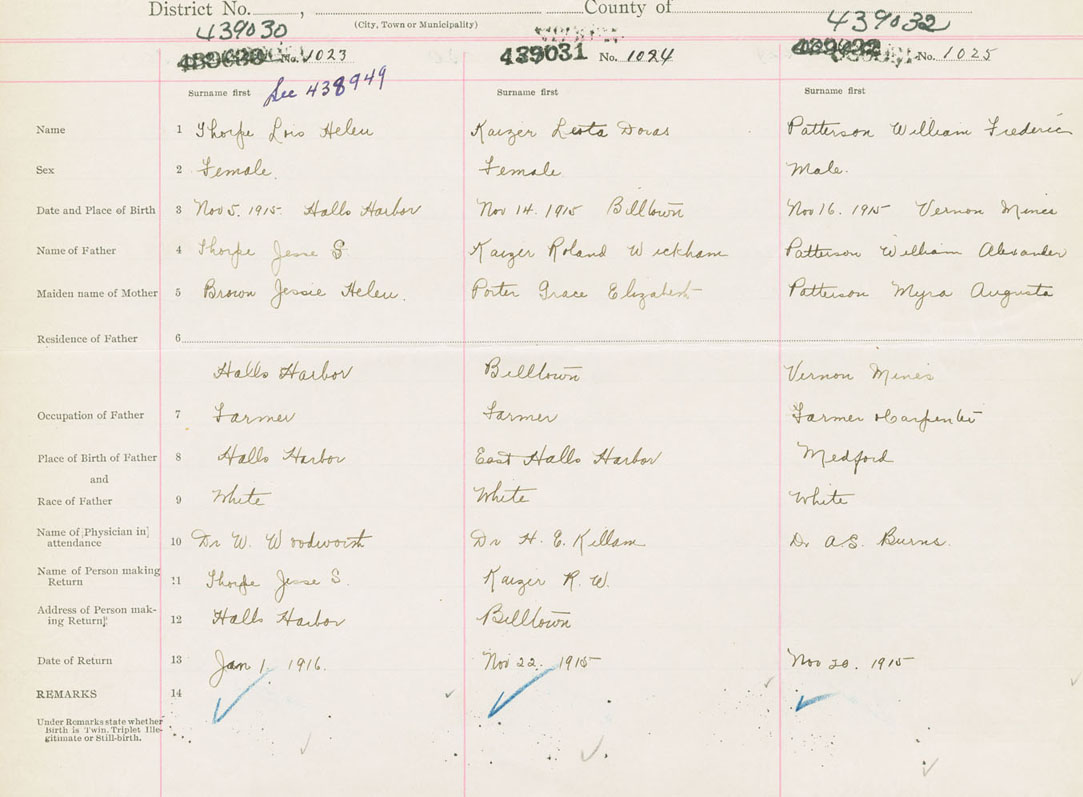 District No. , County of
(City, Town or Municipality)
439030 439032
No. 1023 439031 No. 1024 No. 1025
Surname first See 438949 Surname first Surname first
Name 1 Thorpe Lois Helen Kaizer Leota Doras Patterson William Frederic
Sex 2 Female. Female Male.
Date and Place of Birth 3 Nov 5. 1915. Halls Harbor Nov 14. 1915 Billtown Nov 16. 1915 Vernon Mines
Name of Father 4 Thorpe Jesse S. Kaizer Roland Wickham Patterson William Alexander
Maiden name of Mother 5 Brown Jessie Helen. Porter Grace Elizabeth Patterson Myra Augusta
Residence of Father 6
Halls Harbor Billtown Vernon Mines
Occupation of Father 7 Farmer Farmer Farmer & Carpenter
Place of Birth of Father 8 Halls Harbor East Halls Harbor Medford
and
Race of Father 9 White White White
Name of Physician in
attendance 10 Dr W. Woodworth Dr H. E. Killam Dr A.S. Burns.
Name of Person making
Return 11 Thorpe Jesse S. Kaizer R. W.
Address of Person mak-
ing Return 12 Halls Harbor Billtown
Date of Return 13 Jan 1 1916. Nov 22. 1915 Nov 20. 1915
REMARKS 14
Under Remarks state whether
Birth is Twin, Triplet Ille-
gitimate or Still-birth.